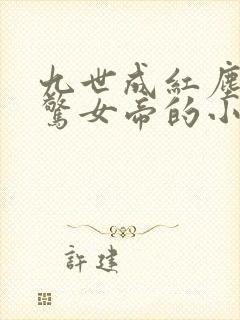 九世成紅塵
驚女帝的小
許建